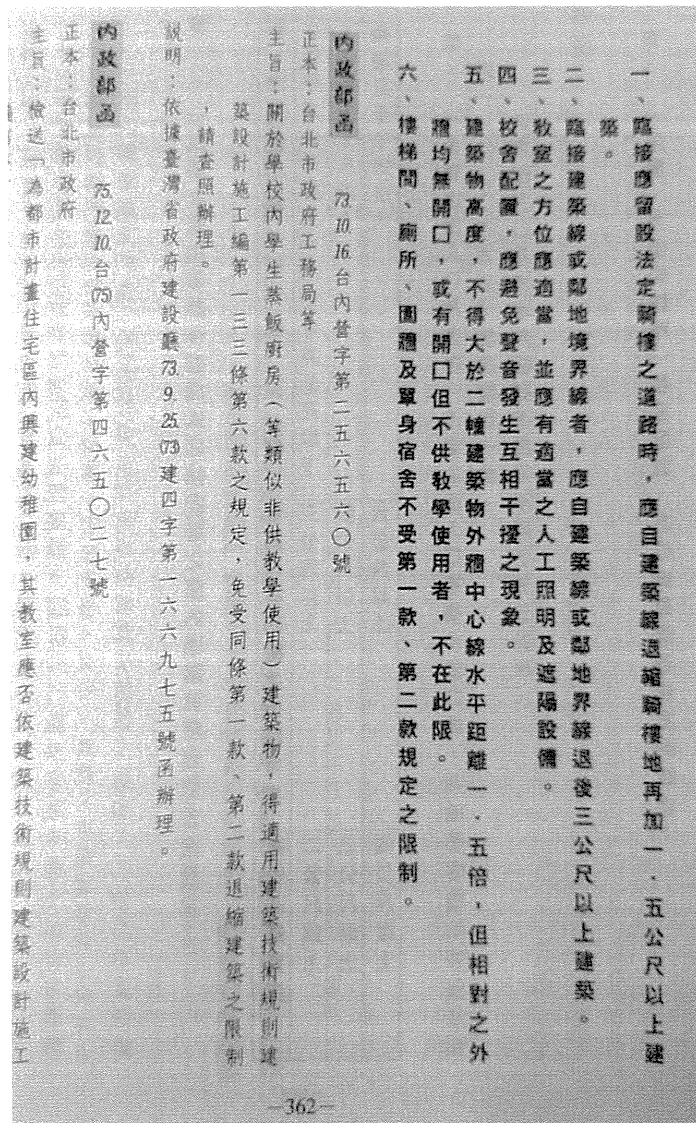 一、臨接應留設法定騎樓之道路時，應自建築線退縮騎樓地再加一．五公尺以上建
築。
二、臨接建築線或鄰地境界線者，應自建築線或鄰地界線退後三公尺以上建築。
三、教室之方位應適當，並應有適當之人工照明及遮陽設備。
四、校舍配置，應避免聲音發生互相干擾之現象。
五、建築物高度，不得大於二幢建築物外牆中心線水平距離一．五倍，但相對之外
牆均無開口，或有開口但不供教學使用者，不在此限。
六、樓梯間、廁所、圍牆及單身宿舍不受第一款、第二款規定之限制。
內政部函 73.10.16.台內營字第二五六五六〇號
正本：台北市政府工務局等
主旨：關於學校內學生蒸飯廚房（等類似非供教學使用）建築物，得適用建築技術規則建
築設計施工編第一三三條第六款之規定，免受同條第一款、第二款退縮建築之限制
，請查照辦理。
說明：依據臺灣省政府建設廳73.9.25.(73)建四字第一六六九七五號函辦理。
內政部函 75.12.10.台(75)內營字第四六五〇二七號
正本：台北市政府
主旨：檢送「為都市計畫住宅區內興建幼稚園，其教室應否依建築技術規則建築設計施工
—362—